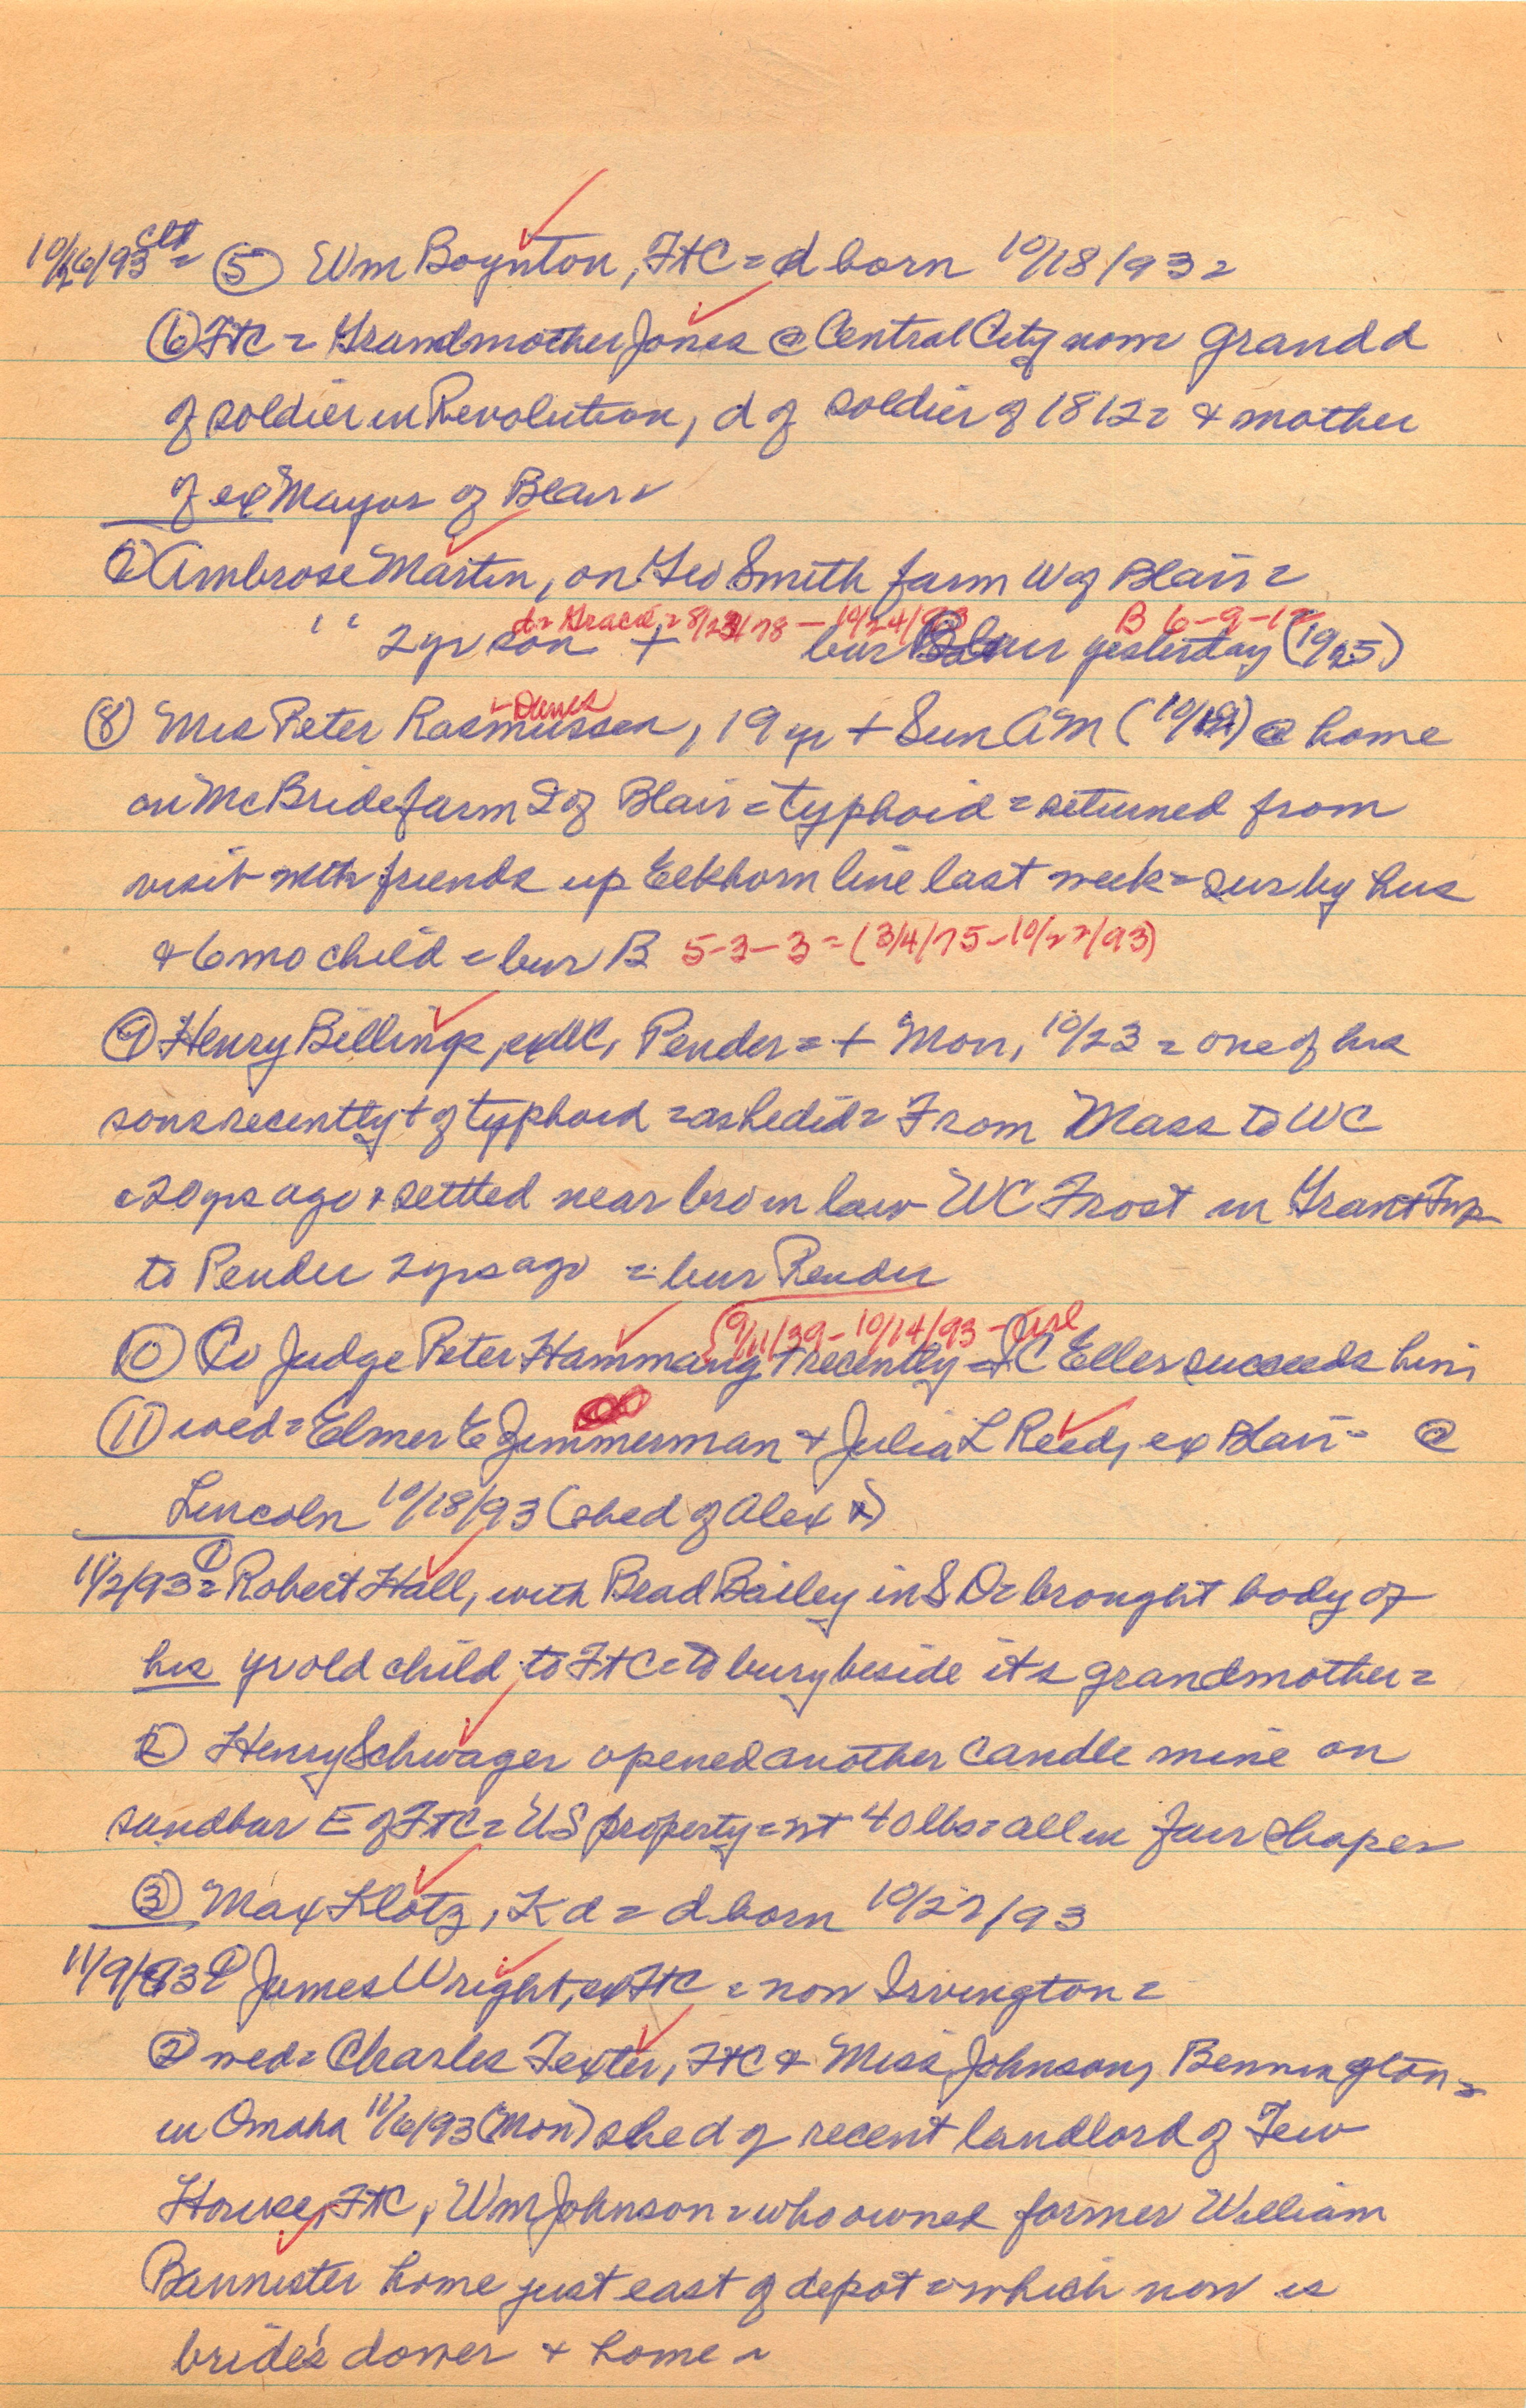 10/26/93 ctd = (5) Wm Boynton, FtC = d born 10/18/93 =
(6) FtC = Grandmother Jones @ Central City now = grand d
of soldier in Revolution, d of soldier of 1812 = & mother
of ex Mayor of Blair =
Ambrose Martin, on Geo Smith farm W of Blair =
d = Grace = 8/23/78 – 10/24/93 B 6-9-12
" 2 yr son + bur Blair yesterday (10/25)
- Danes
(8) Mrs Peter Rasmussen, 19 yr + Sun AM ( ) @ home
on McBride farm S of Blair = typhoid = returned from
visit with friends up Elkhorn line last week = sur by hus
& 6 mo child = bur B 5-3-3 = (3/4/75 – 10/22/93)
(9) Henry Billings, ex WC, Pender = + Mon, 10/23 = one of his
sons recently + of typhoid = as he did = From Mass to WC
c 20 yrs ago & settled near bro in law WC Frost in Grant Twp
to Pender 2 yrs ago = bur Pender
(9/11/39 – 10/14/93 –
(10) Co Judge Peter Hammang + recently = IC Eller succeeds him
(11) wed = Elmer E Zimmerman & Julia L Reed, ex Blair = @
Lincoln 10/18/93 (she d of Alex R)
11/2/93 = (1) Robert Hall, with Brad Bailey in SD = brought body of
his yr old child to FtC = to bury beside its grandmother =
(2) Henry Schwager opened another candle mine on
sandbar E of FtC = US property = wt 40 lbs = all in fair shape =
(3) Max Klotz, Kd = d born 10/27/93
11/9/93 (1) James Wright, ex FtC = now Irvington =
(2) wed = Charles Texter, FtC & Miss Johnson, Bennington =
in Omaha 11/6/93 (Mon) she d of recent landlord of Tew
House, FtC, Wm Johnson = who owned former William
Bannister home just east of depot = which now is
bride's dower & home =